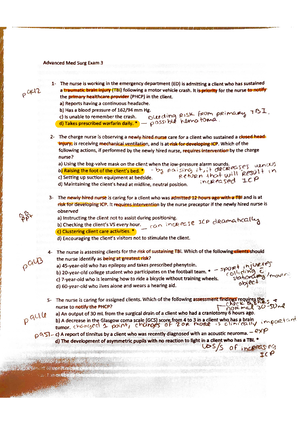 Advanced Med Surg Exam 3
1- The nurse is working in the emergency department (ED) is admitting a client who has sustained
a traumatic brain injury (TBI) following a motor vehicle crash. It is priority for the nurse to notify
the primary healthcare provider (PHCP) in the client.
a) Reports having a continuous headache.
b) Has a blood pressure of 162/94 mm Hg.
c) Is unable to remember the crash. bleeding risk from primary TBI,
d) Takes prescribed warfarin daily. * possible hematoma
2- The charge nurse is observing a newly hired nurse care for a client who sustained a closed head
injury, is receiving mechanical ventilation, and is at risk for developing ICP. Which of the
following actions, if performed by the newly hired nurse, requires intervention by the charge
nurse?
a) Using the bag-valve mask on the client when the low-pressure alarm sounds.
b) Raising the foot of the client's bed. * - by raising it, it decreases venous
c) Setting up suction equipment at bedside. return that will result in
d) Maintaining the client's head at midline, neutral position. increased ICP
3- The newly hired nurse is caring for a client who was admitted 12 hours ago with a TBI and is at
risk for developing ICP. It requires intervention by the nurse preceptor if the newly hired nurse is
observed
a) Instructing the client not to assist during positioning.
b) Checking the client's VS every hour. can increase ICP dramatically
c) Clustering client care activities. *
d) Encouraging the client's visitors not to stimulate the client.
4- The nurse is assessing clients for the risk of sustaining TBI. Which of the following clients should
the nurse identify as being at greatest risk?
a) 45-year-old who has epilepsy and takes prescribed phenytoin.
b) 20-year-old college student who participates on the football team. * - sport injuries
c) 7-year-old who is learning how to ride a bicycle without training wheels. colliding c
d) 60-year-old who lives alone and wears a hearing aid. object
5- The nurse is caring for assigned clients. Which of the following assessment findings requires the
nurse to notify the PHCP?
a) An output of 30 mL from the surgical drain of a client who had a craniotomy 6 hours ago.
b) A decrease in the Glasgow coma scale (GCS) score from 4 to 3 in a client who has a brain
tumor. changed 1 point, changes of 2 or more is clinically important
c) A report of tinnitus by a client who was recently diagnosed with an acoustic neuroma. - exp
d) The development of asymmetric pupils with no reaction to light in a client who has a TBI. *
s/s of increasing
ICP